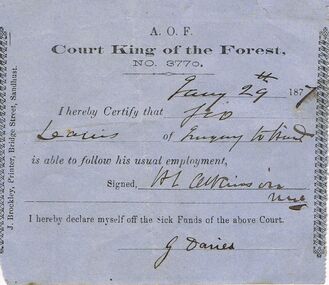 A. O. F.
Court King of the Forest.
NO. 3770.
Jany 29th 1877
I hereby Certify that Geo
of
is able to follow his usual employment,
Signed, H L Atkinson
I hereby declare myself off the Sick Funds of the above Court.
G Davies
J. Brockley, Printer, Bridge Street, Sandhurst.